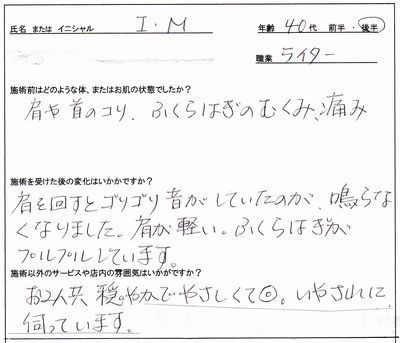 氏名 または イニシャル I・M 年齢 40代 前半・後半
職業 ライター
施術前はどのような体、またはお肌の状態でしたか？
肩や首のコリ、ふくらはぎのむくみ、痛み
施術を受けた後の変化はいかかですか？
肩を回すとゴリゴリ音がしていたのが、鳴らな
くなりました。肩が軽い。ふくらはぎが
プルプルしています。
施術以外のサービスや店内の雰囲気はいかがですか？
お2人共 穏やかでやさしくて◎。いやされに
伺っています。